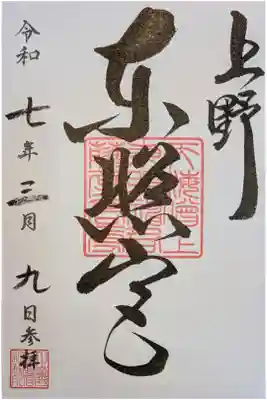 上野
東照宮
令和七年三月九日参拝